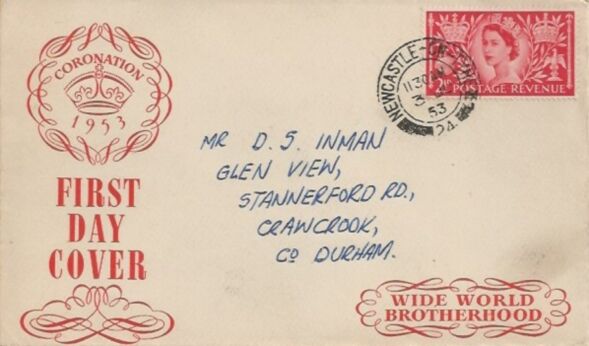 CORONATION
1953
FIRST
DAY
COVER
2½D POSTAGE REVENUE
NEWCASTLE-ON-TYNE
1130AM
3
53
24
MR D. S. INMAN
GLEN VIEW,
STANNERFORD RD.,
CRAWCROOK,
Co DURHAM.
WIDE WORLD
BROTHERHOOD